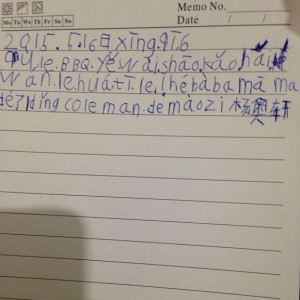 Memo No.
Mo Tu We Th Fr Sa Su
Date / /
2015.5.16日xīng.qī.6
qùle.BBQ.yěwàishāokǎohái
wán.lehuátī.le.hébàbamāma
de7dǐngcoleman.demàozi 杨奥轩